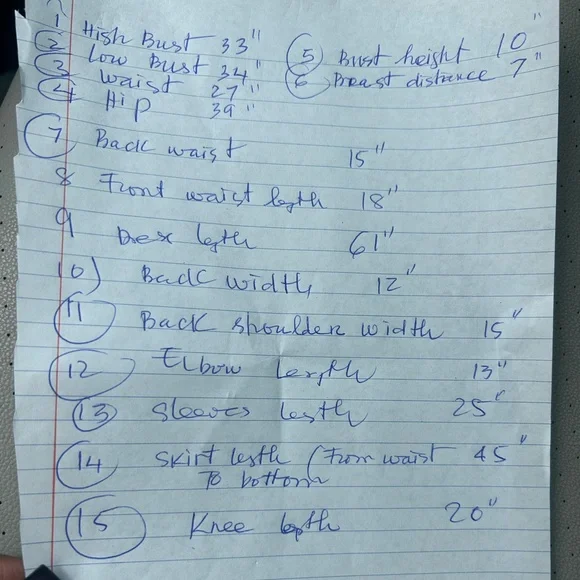 1 High Bust 33"
2 Low Bust 34"
3 waist 27"
4 Hip 39"
5 Bust height 10"
6 Breast distance 7"
7 Back waist 15"
8 Front waist legth 18"
9 Drex legth 61"
10) Back width 12"
11 Back shoulder width 15"
12 Elbow length 13"
13 Sleeves lesth 25"
14 Skirt lesth (From waist 45"
To bottom
15 Knee legth 20"